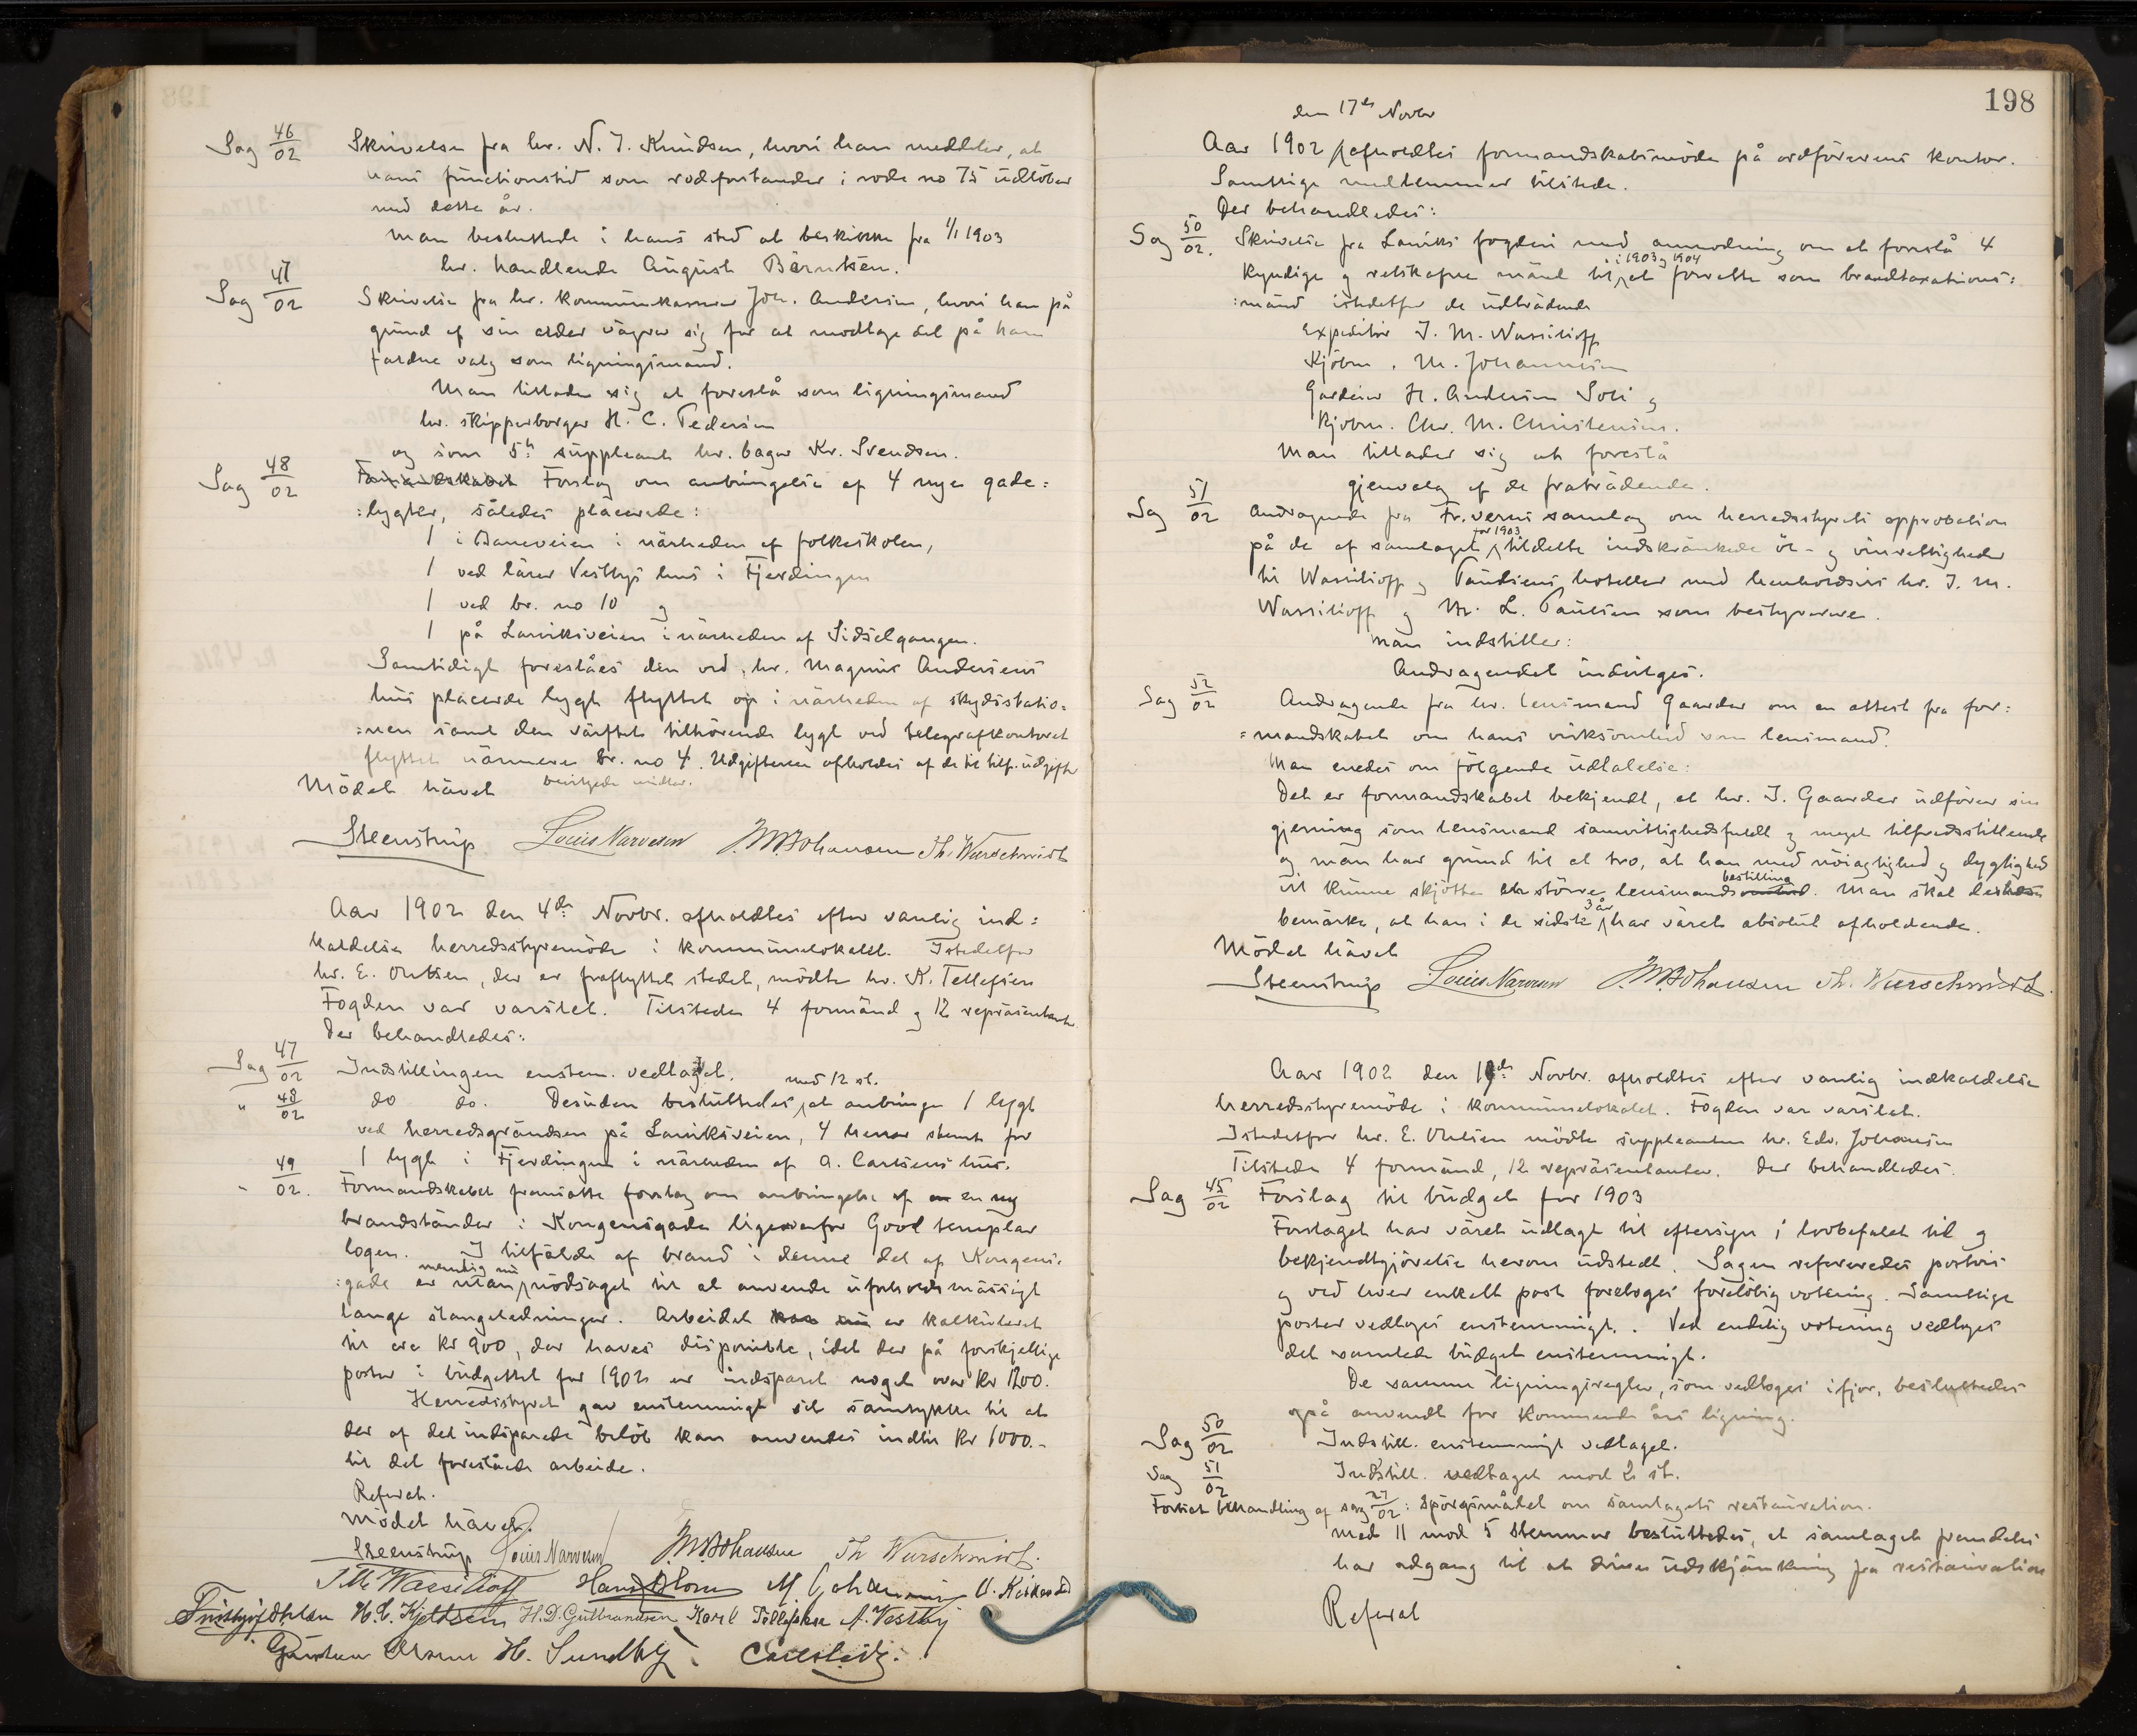 Sag 46/02 Skrivelse fra hr. N. J. Knudsen, hvori han meddeler, at
hans functionstid som rodeforstander i rode no 75 udløber
med dette år.
Man besluttede i hans sted at beskikke fra 1/1 1903
hr. handlende August Bärntsen.
Sag 47/02 Skrivelse fra hr. kommunekasserer Joh. Andersen, hvori han på
grund af sin alder vägrer sig for at modtage det på ham
faldne valg som ligningsmand.
Man tillader sig at foreslå som ligningsmand
hr. skipperborger H. C. Pedersen
og som 5te suppleant hr. bager Kr. Svendsen.
Sag 48/02 Formandskabet Forslag om anbringelse af 4 nye gade=
=lygter, således placerede:
1 i Baneveien i närheden af folkeskolen,
1 ved lärer Vestbys hus i Fjerdingen
1 ved br. no 10 og
1 på Laurviksveien i närheden af Sidselgangen.
Samtidigt foreslåes den ved hr. Magnus Andersens
hus placerede lygt flyttet op i närheden af skydsstatio=
=nen samt den värftet tilhörende lygt ved telegrafkontoret
flyttet närmere br. no 4. Udgifterne afholdes af de til tilf. udgifter
bevilgede midler.
Mödet hävet
Steenstrup Louis Narvesen J. M. Johansen Th. Wurschmidt
Aar 1902 den 4de Novbr. afholdtes efter vanlig ind=
kaldelse herredsstyremöde i kommunelokalet. Istedetfor
hr. E. Ohlsen, der er fraflyttet stedet, mödte hr. K. Tellefsen
Fogden var varslet. Tilstede 4 formänd og 12 repräsentanter
Der behandledes:
Sag 47/02 Indstillingen enstem. vedtaget.
" 48/02 do do. Desuden besluttedes med 12 st. at anbringe 1 lygt
ved herredsgrändsen på Laurviksveien, 4 herrer stemte for
1 lygt i Fjerdingen i närheden af A. Carlsens hus.
" 49/02. Formandskabet fremsatte forslag om anbringelse af en ny
brandständer i Kongensgade ligeoverfor Good templar
logen. I tilfälde af brand i denne del af Kongens=
=gade er man nemlig nu nödsaget til at anvende uforholdsmässigt
lange slangeledninger. Arbeidet er kalkuleret
til ca kr 900, der haves disponible, idet der på forskjellige
poster i budgettet for 1902 er indsparet noget over kr 1200.
Herredsstyret gav enstemmigt sit samtykke til at
der af det indsparede belöb kan anvendes indtil kr 1000.-
til det foreståede arbeide.
Referat.
Mödet hävet.
Steenstrup Louis Narvesen J. M. Johansen Th Wurschmidt.
J M Wassilioff Hans Blom M Johannesen
H. C. Kjeldsen H. D. Gulbrandsen Karl Tellefsen A. Vestby
H. Sundby.
198
den 17de Novbr
Aar 1902 afholdtes formandskabsmöde på ordförerens kontor.
Samtlige medlemmer tilstede.
Der behandledes:
Sag 50/02. Skrivelse fra Laurviks fogderi med anmodning om at foreslå 4
kyndige og retskafne mänd til i 1903 og 1904 at forrette som brandtaxations=
=mänd istedetfor de udträdende
Expeditör J. M. Wassilioff
Kjöbm. M. Johannesen
Gardeier H. Andersen Soli og
Kjöbm. Chr. M. Christensen.
Man tillader sig at foreslå
gjenvalg af de fraträdende.
Sag 51/02 Andragende fra Fr.verns samlag om herredsstyrets approbation
på de af samlaget for 1903 tildelte indskränkede öl- og vinrettigheder
til Wassilioff og Paulsens hoteller med henholdsvis hr. J. M.
Wassilioff og hr. L. Paulsen som bestyrere.
Man indstiller:
Andragendet indvilges.
Sag 52/02 Andragende fra hr. lensmand Gaarder om en attest fra for=
=mandskabet om hans virksomhed som lensmand.
Man enedes om fölgende udtalelse:
Det er formandskabet bekjendt, at hr. J. Gaarder udförer sin
gjerning som lensmand samvittighedsfuldt og meget tilfredsstillende
og man har grund til at tro, at han med nöiagtighed og dygtighed
vil kunne skjötte en större lensmandsbestilling. Man skal
bemärke, at han i de sidste 3 år har väret absolut afholdende.
Mödet hävet
Steenstrup Louis Narvesen J. M. Johansen Th. Wurschmidt.
Aar 1902 den Novbr. afholdtes efter vanlig indkaldelse
herredsstyremöde i kommunelokalet. Fogden var varslet.
Istedetfor hr. E. Ohlsen mödte suppleanten hr. Edv. Johansen
Tilstede 4 formänd, 12 repräsentanter. Der behandledes.
Sag 45/02 Forslag til budget for 1903
Forslaget har väret udlagt til eftersyn i lovbefalet tid og
bekjendtgjörelse herom udstedt. Sagen refereredes postvis
og ved hver enkelt post foretoges forelöbig votering. Samtlige
poster vedtoges enstemmigt. Ved endelig votering vedtoges
det samlede budget enstemmigt.
De samme ligningsregler, som vedtoges ifjor, besluttedes
også anvendt for kommende års ligning.
Sag 50/02 Indstill. enstemmigt vedtaget.
Sag 51/02 Indstill. vedtaget mod 2 st.
Fortsat behandling af sag 27/02: Spörgsmålet om samlagets restauration.
Med 11 mod 5 stemmer besluttedes, at samlaget fremdeles
har adgang til at drive udskjänkning fra restauration
Referat